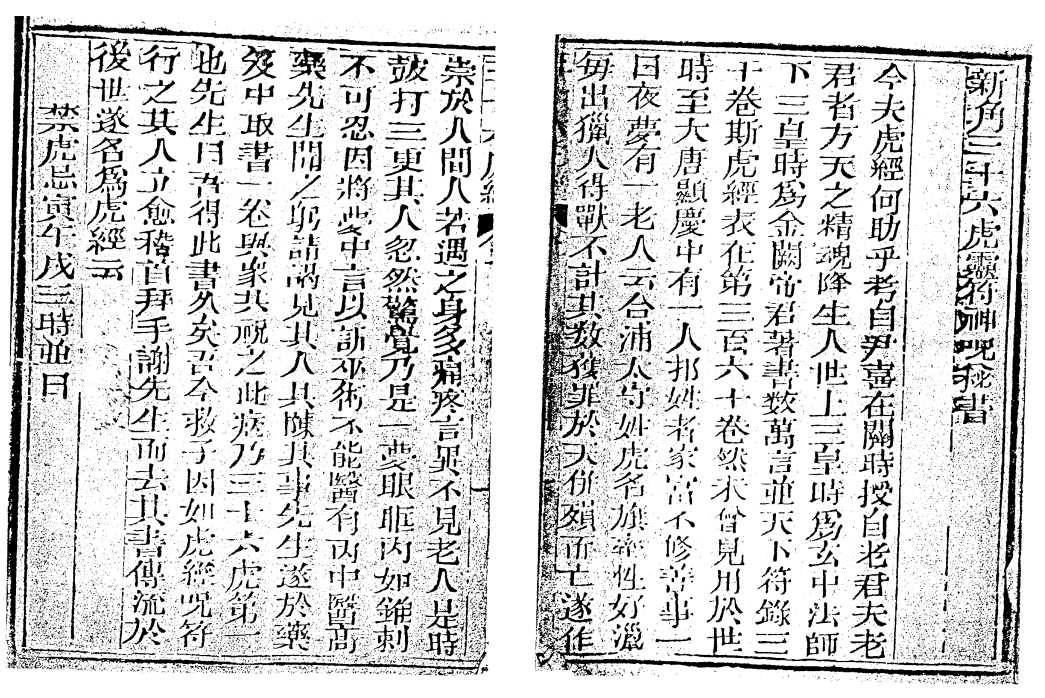 新角三十六虎靈符神呪秘書
今夫虎經何助乎考自尹喜在關時授自老君夫老
君者方天之精魂降生人世上三皇時為玄中法師
下三皇時為金闕帝君著書数萬言並天下符籙三
十卷斯虎經表在第三百六十卷然未曾見用於世
時至大唐顯慶中有一人邦姓者家富不修善事一
日夜夢有一老人云合浦太守姓虎名旗率性好獵
每出獵人得獸不計其数獲罪於天傾而亡遂作
三十六虎經
祟於人間人若遇之身多痛疼言畢不見老人是時
鼓打三更其人忽然驚覺乃是一夢眼眶内如錐刺
不可忍因將夢中言以訴巫術不能醫有市中醫高
藥先生聞之躬請謁見其人具陳其事先生遂於藥
笈中取書一卷與衆共視之此病乃三十六虎第一
也先生曰吾得此書久矣吾今救子因如虎經呪符
行之其人立愈稽首拜手謝先生而去其書傳流於
後世遂名為虎經云
禁虎忌寅午戌三時並日